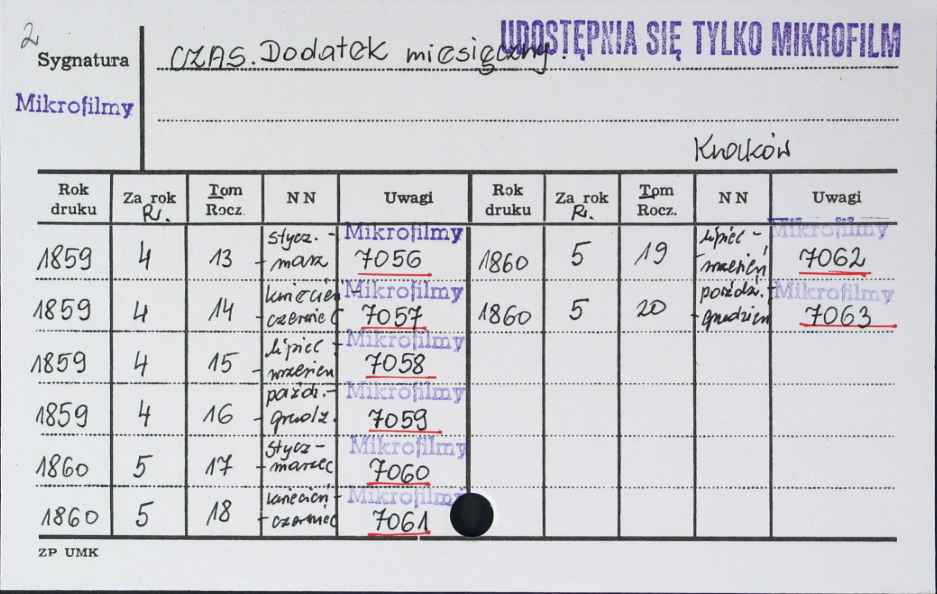 2
UDOSTĘPNIA SIĘ TYLKO MIKROFILM
Sygnatura CZAS. Dodatek miesięczny.
Mikrofilmy
Kraków
Rok druku Za rok R. Tom Rocz. NN Uwagi Rok druku Za rok R. Tom Rocz. NN Uwagi
1859 4 13 stycz. - - marz Mikrofilmy 7056 1860 5 19 lipiec - - wrzesień Mikrofilmy 7062
1859 4 14 kwiecień - - czerwiec Mikrofilmy 7057 1860 5 20 paździ. - - grudzień Mikrofilmy 7063
1859 4 15 lipiec - - wrzesień Mikrofilmy 7058
1859 4 16 paźdz. - - grudz. Mikrofilmy 7059
1860 5 17 stycz - - marzec Mikrofilmy 7060
1860 5 18 kwiecień - - czerwiec Mikrofilmy 7061
ZP UMK